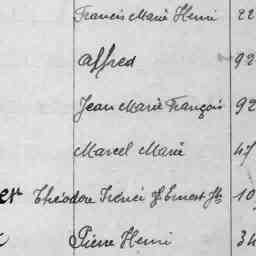 Francis Marie Henri 22
Alfred 92
Jean Marie François 92
Marcel Marie 47
er Théodore Irénée Ernest 10
Pierre Henri 34